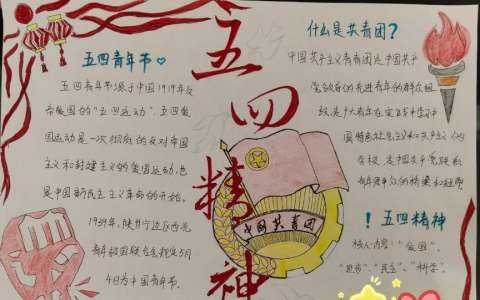 五四精神
五四青年节
五四青年节源于中国1919年反
帝爱国的“五四运动”，五四爱
国运动是一次彻底的反对帝国
主义和封建主义的爱国运动，也
是中国新民主主义革命的开始。
1939年，陕甘宁边区西北
青年救国联合会规定5月
4日为中国青年节。
什么是共青团？
中国共产主义青年团是中国共产
党领导的先进青年的群众组
织，是广大青年在实践中学习中
国特色社会主义和共产主义的
学校，是中国共产党联系
青年群众的桥梁和纽带
中国共青团
！五四精神
核心内容：“爱国”、
“进步”、“民主”、“科学”。